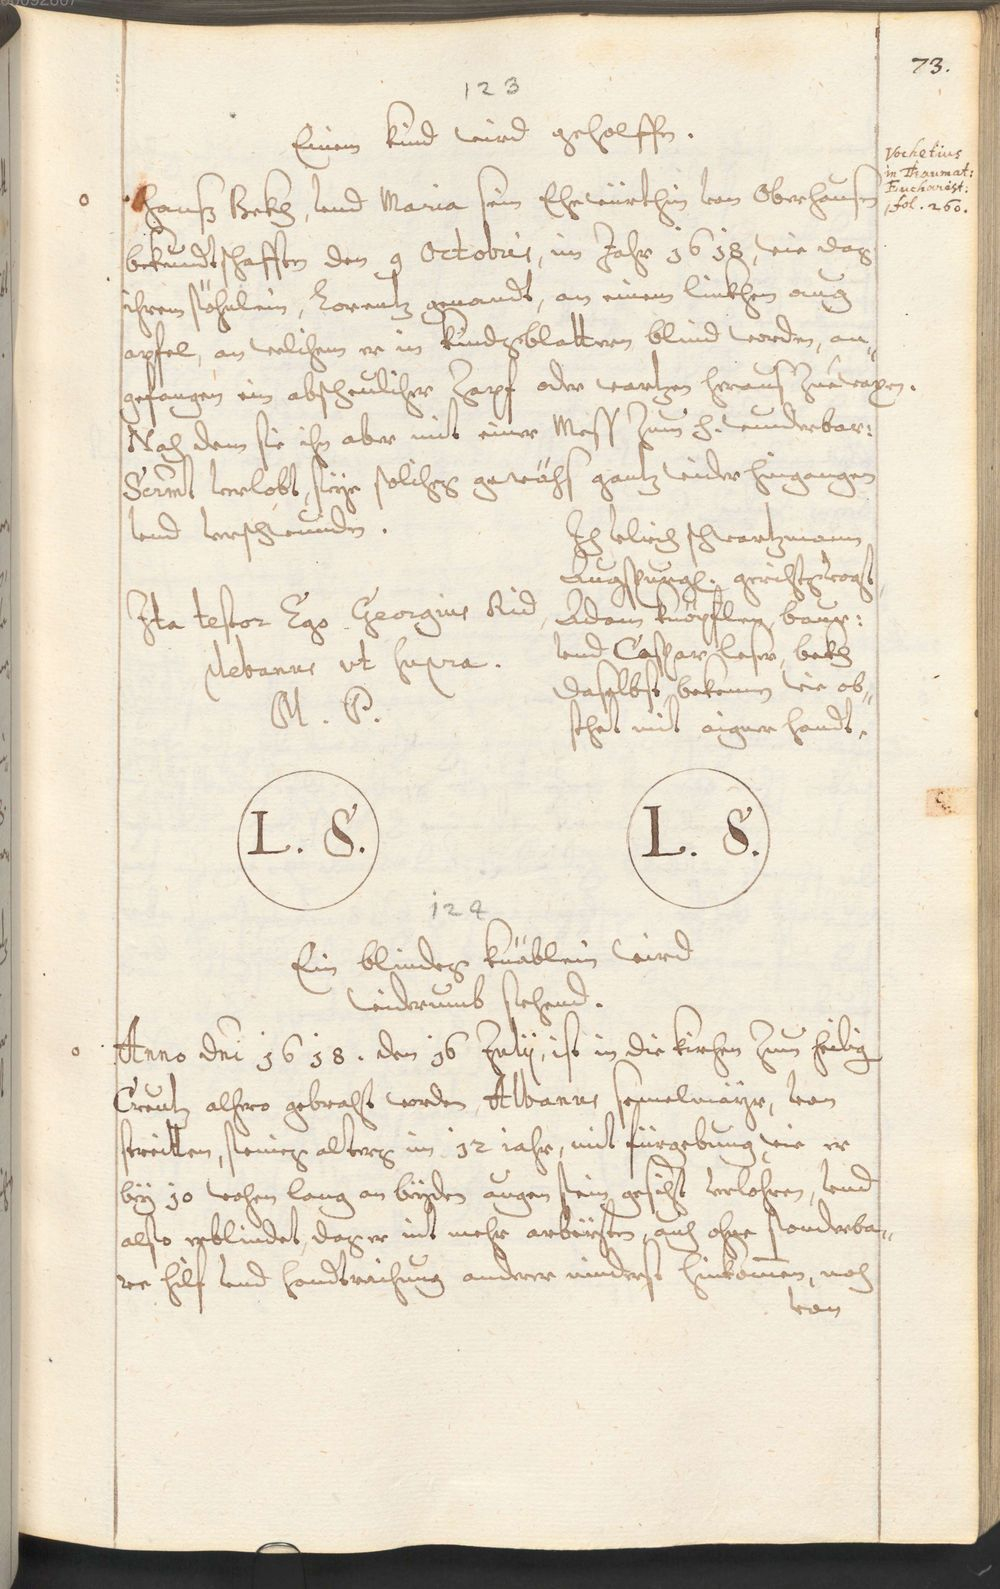 73.
123
Einem kind wird geholffen.
Vochetius
in Thaumat:
Eucharist:
fol. 260.
Hanß Bekh, vnd Maria sein Ehewürthin von Oberhausen
bekundtschafften den 9 Octobris, im Jahr 1618, wie daß
ihrem söhnlein, Lorentz genandt, an einem linkhen aug
apfel, an welichem er in kindsblattern blind worden, an-
gefangen ein abscheulicher Zapf oder wartzen heraus Zuewaxen.
Nach dem sie ihn aber mit einer Mess Zum H. wunderbar:
Scrmt verlobt, seye soliches gewächs gantz wider hingangen
vnd verschwunden.
Ich Vlrich schwartzmann
Augspurg. gerichtsvogt,
Adam knöpflen, baur:
vnd Caspar leser, bekh
daselbst bekennen wie ob-
stehet mit aigner handt.
Ita testor Ego Georgius Rid,
plebanus vt supra.
M. P.
L. S.
L. S.
124
Ein blindes knäblein wird
widerumb sehend.
Anno dni 1618. den 16 Julij, ist in die kirchen Zum heilig
Creutz alhero gebracht worden, Albanus semelmayr, von
streitten, seines alters im 12 iahr, mit fürgebung wie er
bey 10 wochen lang an beyden augen sein gesicht verlohren, vnd
also erblindet, das er nit mehr arbeiten, auch ohne sonderba-
re hilf vnd handtraichung anderer niderst hinkommen, noch
von